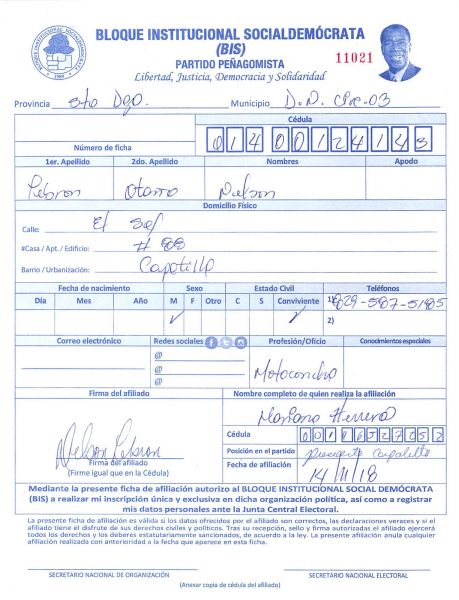 BLOQUE INSTITUCIONAL SOCIALDEMÓCRATA
BLOQUE INSTITUCIONAL SOCIALDEMÓCRATA
(BIS)
PARTIDO PEÑAGOMISTA
Libertad, Justicia, Democracia y Solidaridad
11021
Provincia Sto Dgo. Municipio D.N. Circ. 03
Cédula
Número de ficha 01400124143
1er. Apellido 2do. Apellido Nombres Apodo
Lebron Otaño Nelson
Domicilio Físico
Calle: El Sol
#Casa / Apt. / Edificio: # 88
Barrio / Urbanización: Capotillo
Fecha de nacimiento Sexo Estado Civil Teléfonos
Día Mes Año M F Otro C S Conviviente 1) 829-587-5185
2)
Correo electrónico Redes sociales Profesión/Oficio Conocimientos especiales
@
@ Motoconcho
@
Firma del afiliado Nombre completo de quien realiza la afiliación
Mariano Herrera
Nelson Lebron
Cédula 00116527052
Firma del afiliado
(Firme igual que en la Cédula)
Posición en el partido Presidente Capotillo
Fecha de afiliación 14/11/18
Mediante la presente ficha de afiliación autorizo al BLOQUE INSTITUCIONAL SOCIAL DEMÓCRATA
(BIS) a realizar mi inscripción única y exclusiva en dicha organización política, así como a registrar
mis datos personales ante la Junta Central Electoral.
La presente ficha de afiliación es válida si los datos ofrecidos por el afiliado son correctos, las declaraciones veraces y si el
afiliado tiene el disfrute de sus derechos civiles y políticos. Tras su recepción, sello y firma autorizadas el afiliado ejercerá
todos los derechos y los deberes estatutariamente sancionados, de acuerdo a la ley. La presente afiliación anula cualquier
afiliación realizada con anterioridad a la fecha que aparece en esta ficha.
SECRETARIO NACIONAL DE ORGANIZACIÓN SECRETARIO NACIONAL ELECTORAL
(Anexar copia de cédula del afiliado)